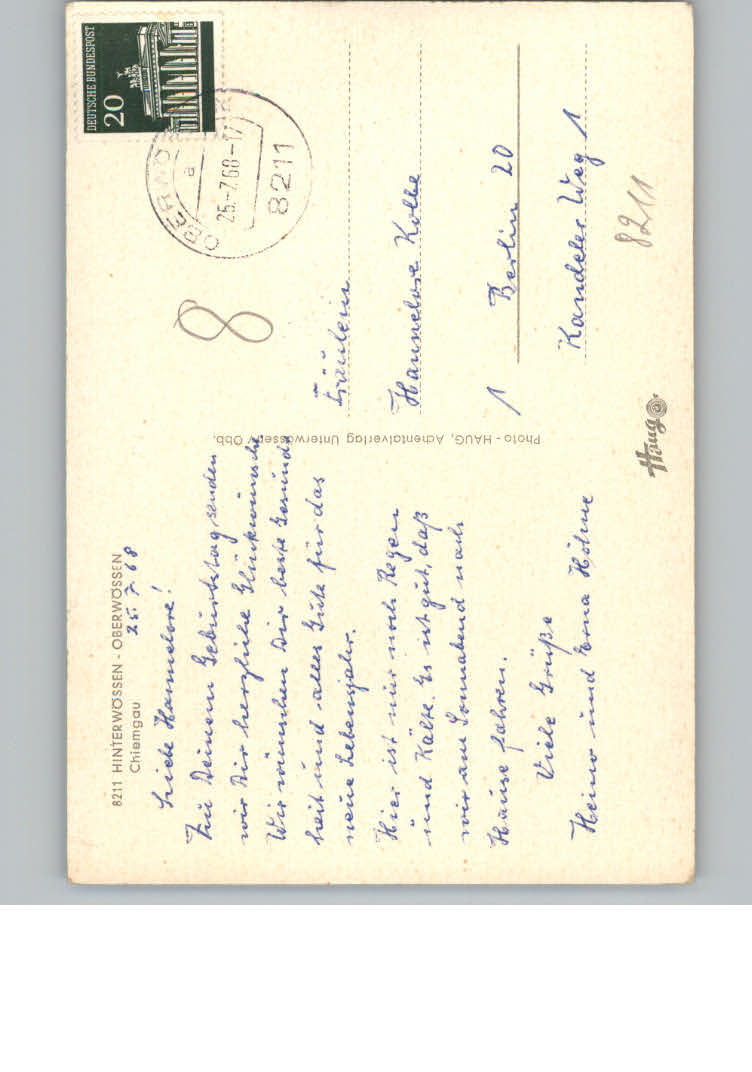 8211 HINTERWÖSSEN - OBERWÖSSEN
Chiemgau
25. 7. 68
Liebe Hannelore!
Zu Deinem Geburtstag senden
wir Dir herzliche Glückwünsche
Wir wünschen Dir beste Gesund
heit und alles Gute für das
neue Lebensjahr.
Hier ist nur noch Regen
und Kälte. Es ist gut, daß
wir am Sonnabend nach
Hause fahren.
Viele Grüße
Heino und Erna Höhne
Photo - HAUG, Achentalverlag Unterwössen / Obb.
DEUTSCHE BUNDESPOST
20
a
25.-7.68-17
8211
8
Fräulein
Hannelore Kolbe
1 Berlin 20
Kandeler Weg 1
8211
Haug